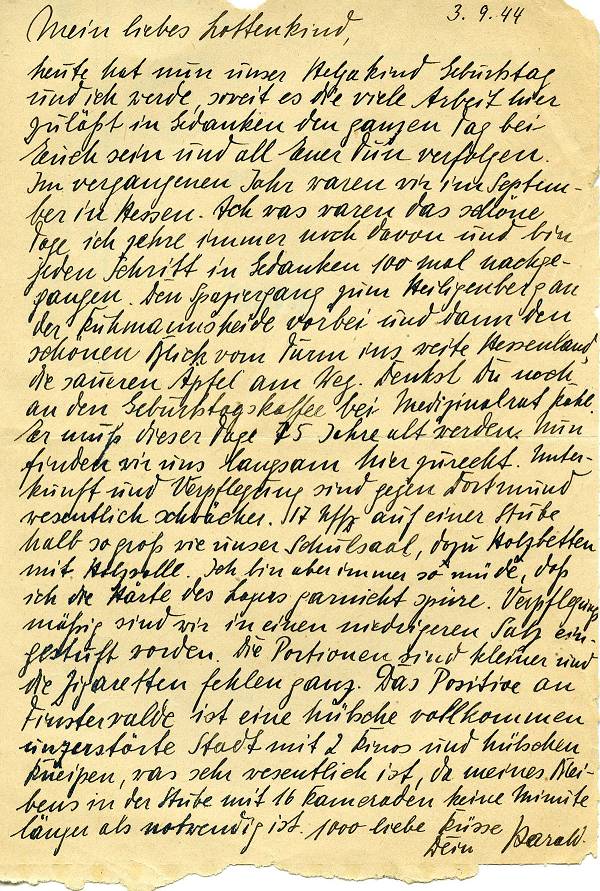 3. 9. 44
Mein liebes Lottenkind,
heute hat nun unser Helgakind Geburtstag
und ich werde, soweit es die viele Arbeit hier
zuläßt in Gedanken den ganzen Tag bei
Euch sein und all Euer Tun verfolgen.
Im vergangenen Jahr waren wir im Septem-
ber in Hessen. Ach was waren das schöne
Tage, ich zehre immer noch davon und bin
jeden Schritt in Gedanken 100 mal nachge-
gangen. Den Spaziergang zum Heiligenberg an
der Kuhmannsheide vorbei und dann den
schönen Blick vom Turm ins weite Hessenland,
die saueren Äpfel am Weg. Denkst Du noch
an den Geburtstagskaffee bei Medizinalrat
Er muß dieser Tage 75 Jahre alt werden. Nun
finden wir uns langsam hier zurecht. Unter-
kunft und Verpflegung sind gegen Dortmund
wesentlich schwächer. 17 Uffz auf einer Stube
halb so groß wie unser Schulsaal, dazu Holzbetten
mit Holzwolle. Ich bin aber immer so müde, daß
ich die Härte des Lagers garnicht spüre. Verpflegungs
mäßig sind wir in einen niedrigeren Satz ein-
gestuft worden. Die Portionen sind kleiner und
die Zigaretten fehlen ganz. Das Positive an
Finsterwalde ist eine hübsche vollkommen
unzerstörte Stadt mit 2 Kinos und hübschen
Kneipen, was sehr wesentlich ist, da meines Blei-
bens in der Stube mit 16 Kameraden keine Minute
länger als notwendig ist. 1000 liebe Küsse
Dein Harald.